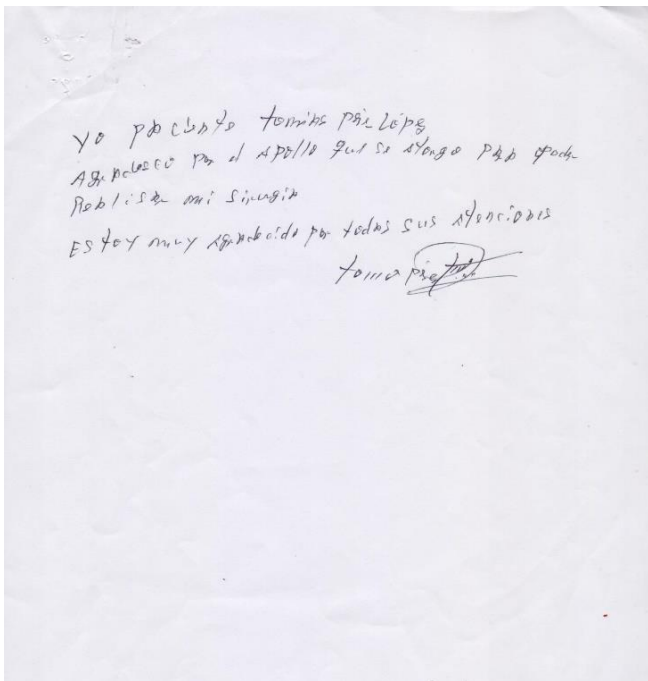 Yo paciente tomas López
Agradesco por el apollo que se otorgo para poder
Realisar mi sirugia
EStoy muy agradecido por todas sus atenciones
tomas